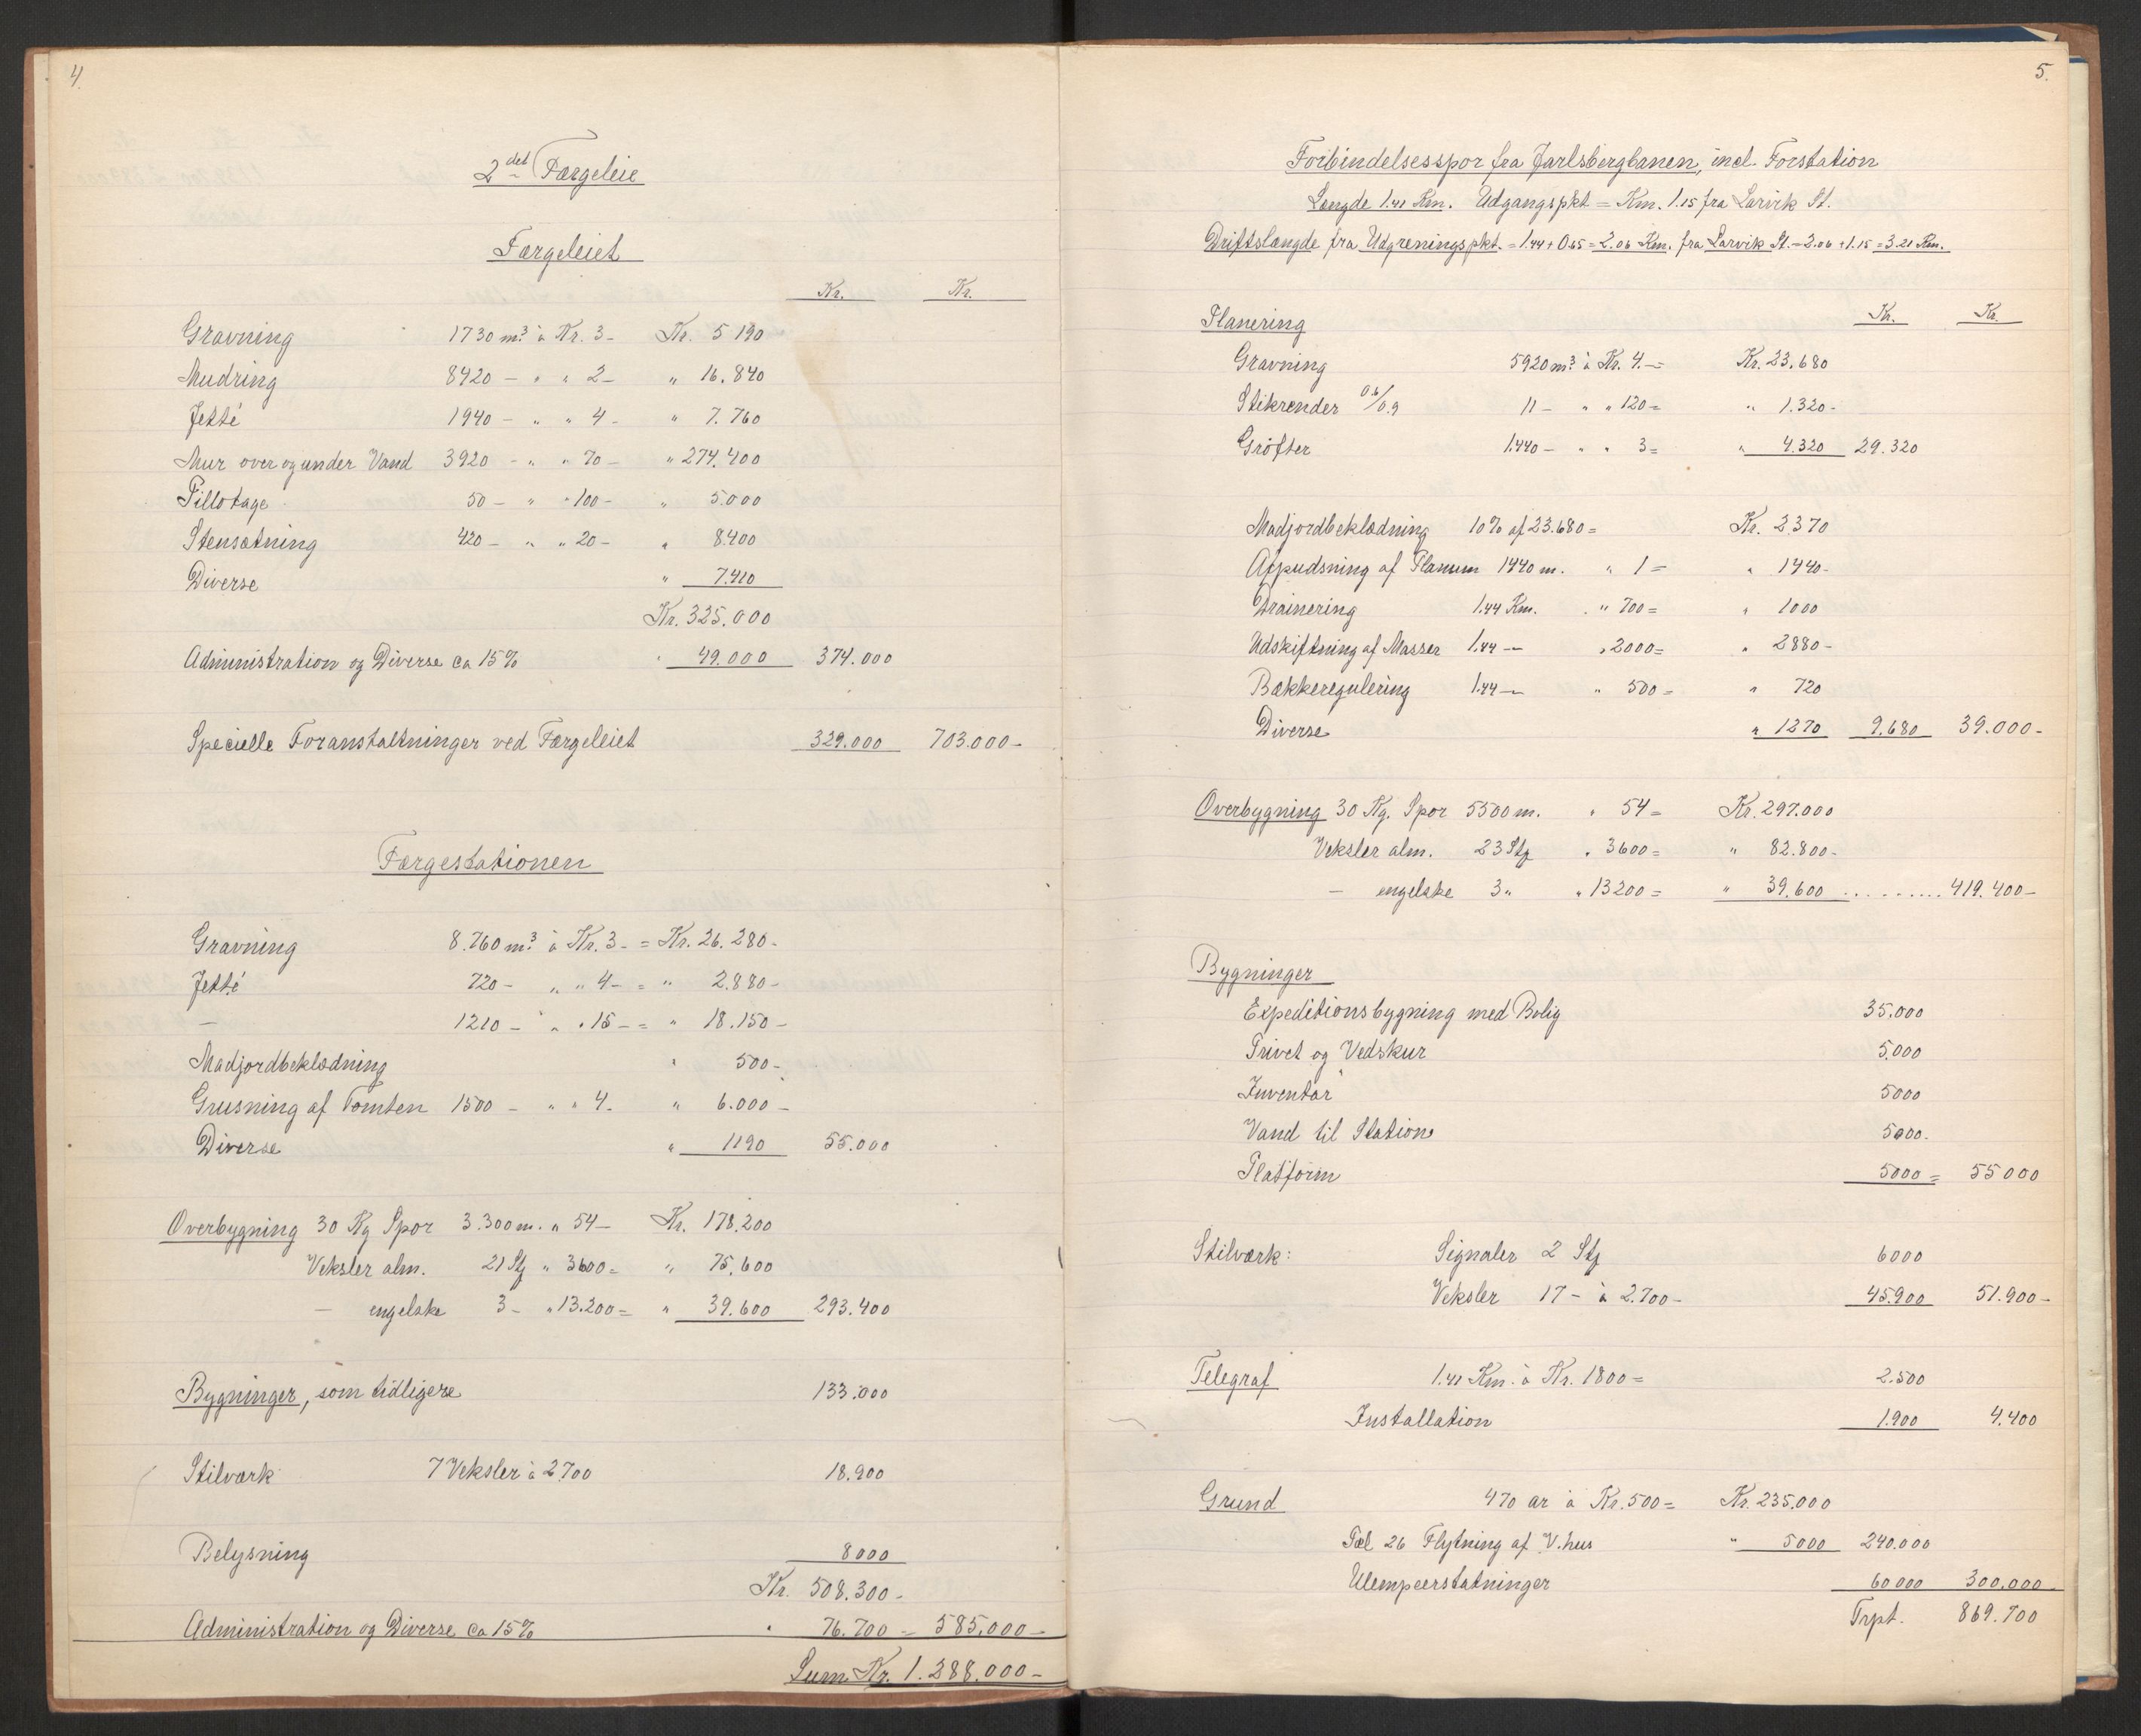 4.
2det Færgeleie
Færgeleiet
Kr. Kr.
Gravning 1730 m.3 à Kr. 3 - Kr. 5 190
Mudring 8420 - " " 2 - " 16.840
Jetté 1940 - " " 4 - " 7.760
Mur over og under Vand 3920 - " " 70 - " 274.400
Pillotage 50 - " " 100 - " 5.000
Stensætning 420 - " " 20 - " 8400
Diverse " 7410
Kr. 325.000
Administration og Diverse ca 15% " 49.000 374.000
Specielle Foranstaltninger ved Færgeleiet 329.000 703.000 -
Færgestationen
Gravning 8.760 m.3 à Kr. 3 - = Kr. 26.280 -
Jetté 720 - " " 4 - = " 2.880 -
- 1210 - " " 15 - = " 18.150 -
Madjordbeklædning " 500 -
Grusning af Tomten 1500 - " " 4. " 6.000 -
Diverse " 1190 55.000
Overbygning 30 Kg Spor 3.300 m. " 54 - Kr. 178.200
Veksler alm. 21 Stg " 3600 = " 75.600
- engelske 3 - " 13.200 = " 39.600 293.400
Bygninger, som tidligere 133.000
Stilværk 7 Veksler à 2700 18.900
Belysning 8000
Kr. 508.300 -
Administration og Diverse ca 15% " 76.700 = 585.000 -
Sum Kr. 1.288.000 -
5.
Forbindelsesspor fra Jarlsbergbanen, incl. Forstation
Længde 1.41 Km. Udgangspkt = Km. 1.15 fra Larvik St.
Driftslængde fra Udgreningspkt. = 1.44 + 0.65 = 2.06 Km. fra Larvik St. = 2.06 + 1.15 = 3.21 Km.
Kr. Kr.
Planering
Gravning 5920 m.3 à Kr. 4. - = Kr. 23.680
Stikrender 0.6/0.9 11 - " " 120 = " 1.320 -
Grøfter 1.440 - " " 3 = " 4.320 29.320
Madjordbeklædning 10% af 23.680 = Kr. 2370
Afpudsning af Planum 1440 m. " 1 = " 1440 -
Drainering 1.44 Km. " 700 = " 1000
Udskiftning af Masser 1.44 - " 2000 = " 2880 -
Bækkeregulering 1.44 - " 500 = " 720
Diverse " 1270 9.680 39.000 -
Overbygning 30 Kg. Spor 5500 m. " 54 = Kr. 297.000
Veksler alm. 23 Stg " 3600 = " 82.800 -
- engelske 3 " " 13200 = " 39.600 ......... 419.400 -
Bygninger
Expeditionsbygning med Bolig 35.000
Privet og Vedskur 5.000
Inventar 5000
Vand til Station 5000.
Platform 5000 = 55 000
Stilværk: Signaler 2 Stg 6000
Veksler 17 - à 2.700 - 45.900 51.900 -
Telegraf 1.41 Km. à Kr. 1800 = 2.500
Installation 1.900 4.400
Grund 470 ar à Kr. 500 = Kr. 235.000
Pæl 26 Flytning af V.hus " 5000 240.000
Ulempeerstatninger 60 000 300,000 -
Trpt. 869.700